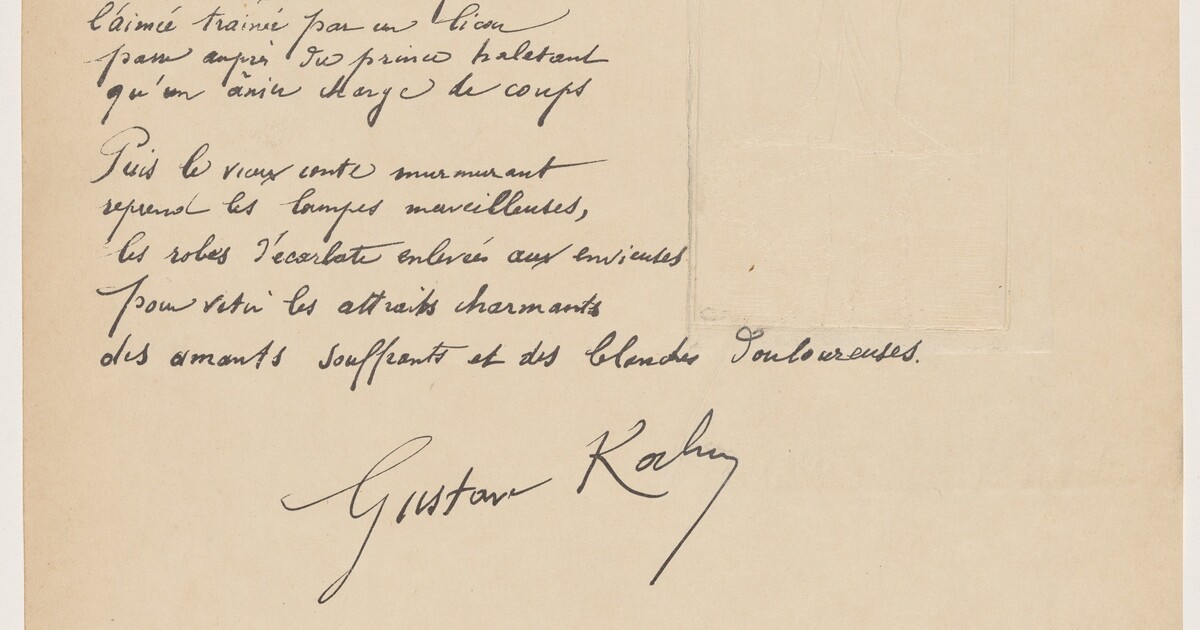 l'aimée traînée par un licou
passe auprès du prince haletant
qu'un ânier charge de coups
Puis le vieux conte murmurant
reprend les lampes merveilleuses,
les robes d'écarlate enlevées aux envieuses
pour vêtir les attraits charmants
des amants souffrants et des blanches douloureuses.
Gustave Kahn